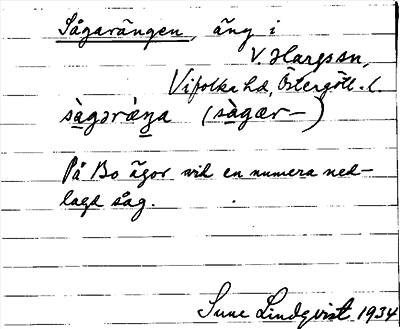 Sågarängen, äng i
V. Hargs sn,
Vifolka hd, Östergötl. l.
sàgaräŋa (sàgær–)
På Bo ägor vid en numera ned-
lagd såg.
Sune Lindqvist 1934